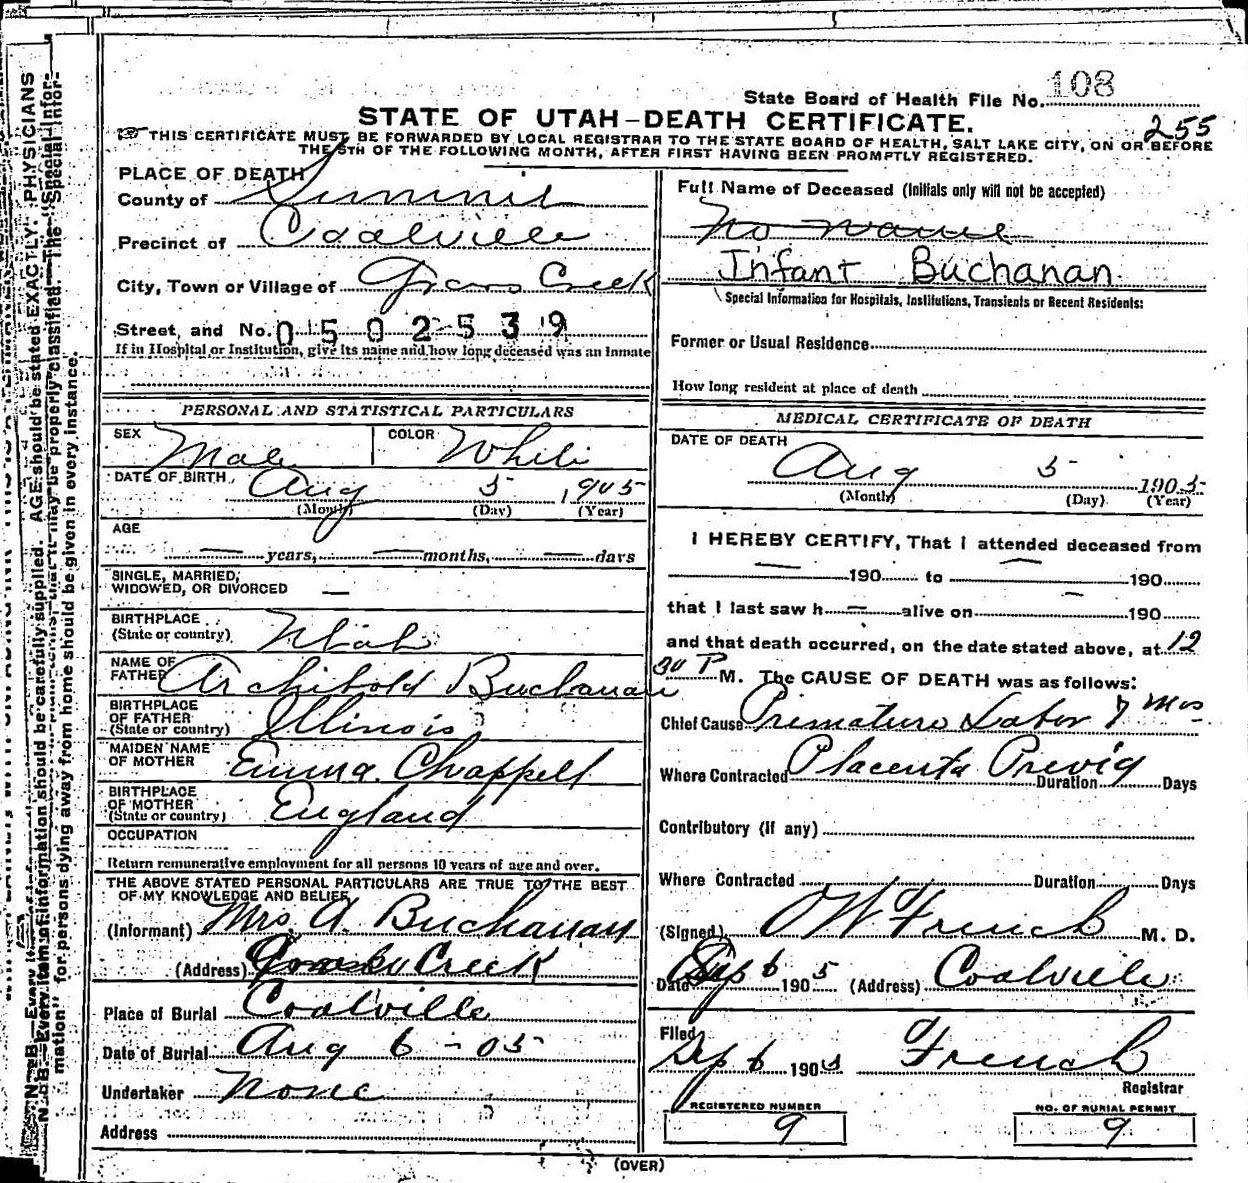 108
State Board of Health File No.
STATE OF UTAH-DEATH CERTIFICATE.
255
THIS CERTIFICATE MUST BE FORWARDED BY LOCAL REGISTRAR TO THE STATE BOARD OF HEALTH, SALT LAKE CITY, ON OR BEFORE
THE 5TH OF THE FOLLOWING MONTH, AFTER FIRST HAVING BEEN PROMPTLY REGISTERED.
PLACE OF DEATH
County of Summit
Precinct of Coalville
City, Town or Village of Grass Creek
Street, and No. 0502539
If in Hospital or Institution, give its name and how long deceased was an Inmate
PERSONAL AND STATISTICAL PARTICULARS
SEX Male COLOR White
DATE OF BIRTH Aug 5 1905
(Month) (Day) (Year)
AGE
— years, — months, — days
SINGLE, MARRIED,
WIDOWED, OR DIVORCED —
BIRTHPLACE
(State or country) Utah
NAME OF
FATHER Archibold Buchanan
BIRTHPLACE
OF FATHER
(State or country) Illinois
MAIDEN NAME
OF MOTHER Emma Chappell
BIRTHPLACE
OF MOTHER
(State or country) England
OCCUPATION
Return remunerative employment for all persons 10 years of age and over.
THE ABOVE STATED PERSONAL PARTICULARS ARE TRUE TO THE BEST
OF MY KNOWLEDGE AND BELIEF
(Informant) Mrs. A. Buchanan
(Address) Creek
Place of Burial Coalville
Date of Burial Aug 6 - 05
Undertaker None
Address
Full Name of Deceased (Initials only will not be accepted)
No name
Infant Buchanan
Special Information for Hospitals, Institutions, Transients or Recent Residents:
Former or Usual Residence
How long resident at place of death
MEDICAL CERTIFICATE OF DEATH
DATE OF DEATH
Aug 5 1905
(Month) (Day) (Year)
I HEREBY CERTIFY, That I attended deceased from
— 190 to — 190
that I last saw h — alive on 190
and that death occurred, on the date stated above, at 12
30 P M. The CAUSE OF DEATH was as follows:
Chief Cause Premature Labor 7 Mos
Where Contracted Placenta Previa Duration Days
Contributory (if any)
Where Contracted Duration Days
(Signed) O W French M. D.
Date Sep 6 1905 (Address) Coalville
Filed
Sep 6 1905 French
Registrar
REGISTERED NUMBER
9
NO. OF BURIAL PERMIT
9
(OVER)
N. B.—Every item of information should be carefully supplied. AGE should be stated EXACTLY. PHYSICIANS
may be properly classified. The "Special Infor-
mation" for persons dying away from home should be given in every instance.